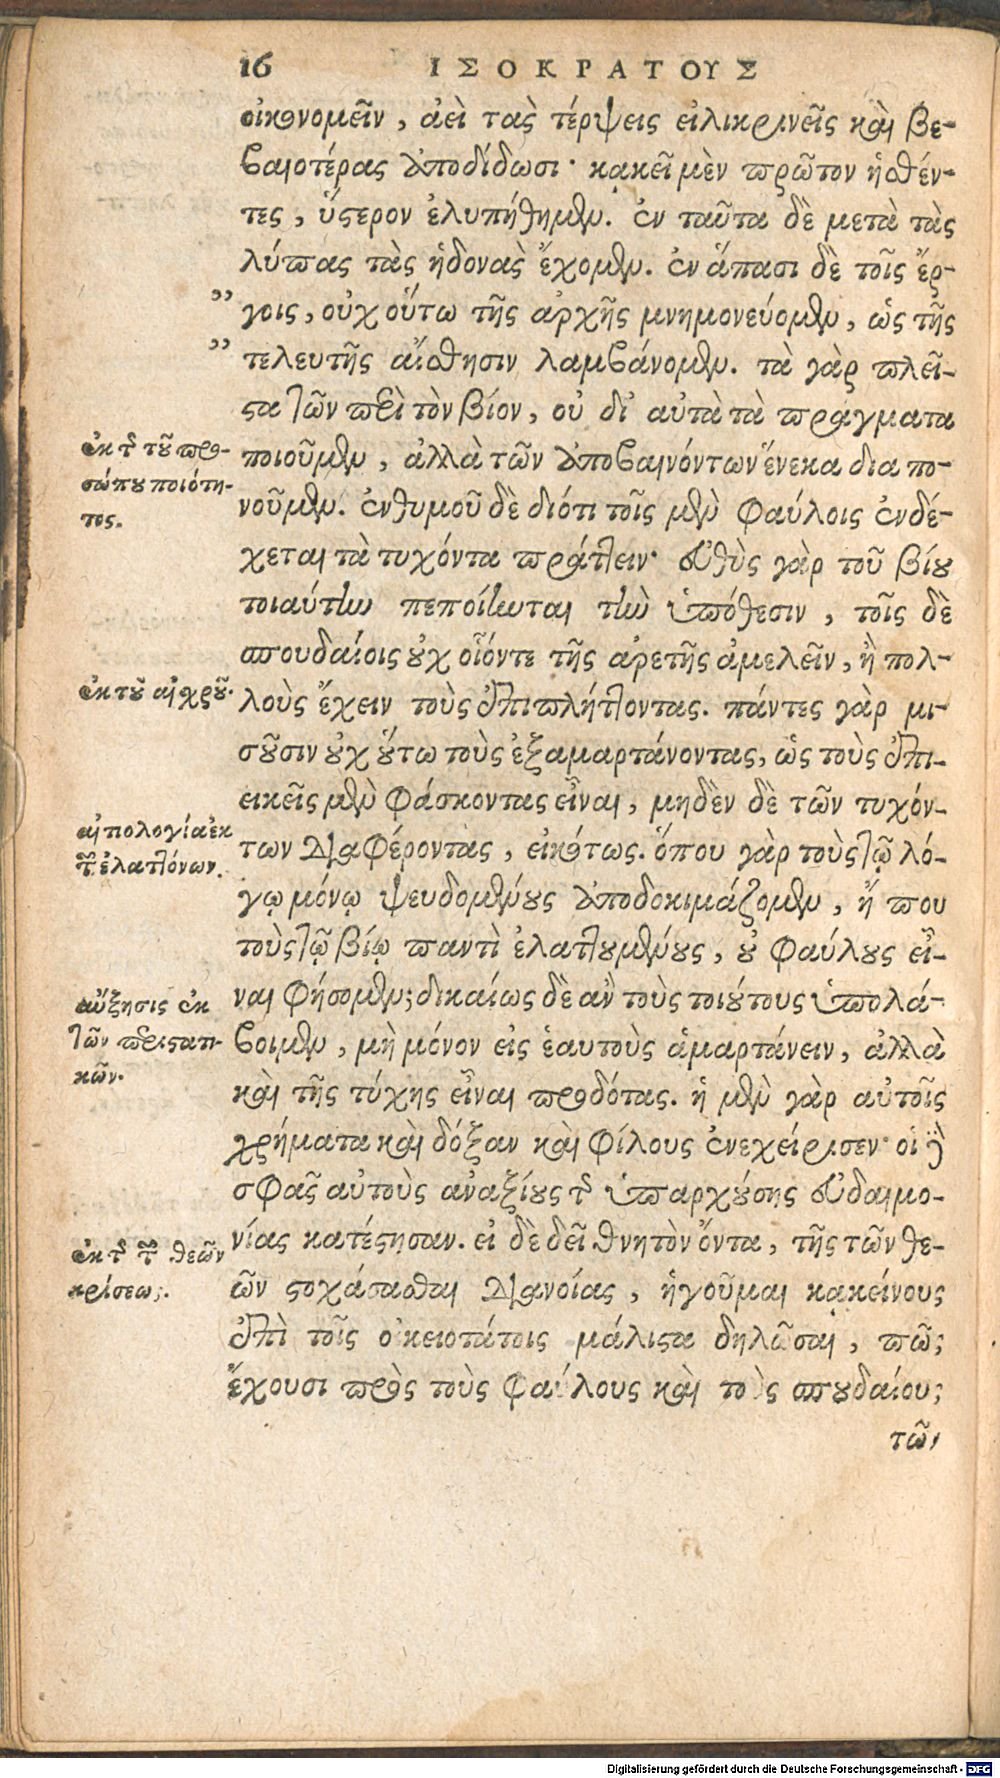 16 ΙΣΟΚΡΑΤΟΥΣ
οἰκονομεῖν, ἀεὶ τὰς τέρψεις εἰλικρινεῖς καὶ βε-
βαιοτέρας ἀποδίδωσι· κἀκεῖ μὲν πρῶτον ἡσθέν-
τες, ὕστερον ἐλυπήθημεν. ἐν ταῦτα δὲ μετὰ τὰς
λύπας τὰς ἡδονὰς ἔχομεν. ἐν ἅπασι δὲ τοῖς ἔρ-
" γοις, οὐχ οὕτω τῆς ἀρχῆς μνημονεύομεν, ὡς τῆς
" τελευτῆς αἴσθησιν λαμβάνομεν. τὰ γὰρ πλεῖ-
στα τῶν περὶ τὸν βίον, οὐ δι' αὐτὰ τὰ πράγματα
ποιοῦμεν, ἀλλὰ τῶν ἀποβαινόντων ἕνεκα διαπο-
νοῦμεν. ἐνθυμοῦ δὲ διότι τοῖς μὲν φαύλοις ἐνδέ-
χεται τὰ τυχόντα πράττειν· εὐθὺς γὰρ τοῦ βίου
τοιαύτην πεποίηνται τὴν ὑπόθεσιν, τοῖς δὲ
σπουδαίοις οὐχ οἷόντε τῆς ἀρετῆς ἀμελεῖν, ἢ πολ-
λοὺς ἔχειν τοὺς ἐπιπλήττοντας. πάντες γὰρ μι-
σοῦσιν οὐχ οὕτω τοὺς ἐξαμαρτάνοντας, ὡς τοὺς ἐπι-
εικεῖς μὲν φάσκοντας εἶναι, μηδὲν δὲ τῶν τυχόν-
των διαφέροντας, εἰκότως. ὅπου γὰρ τοὺς τῷ λό-
γῳ μόνῳ ψευδομένους ἀποδοκιμάζομεν, ἤ που
τοὺς τῷ βίῳ παντὶ ἐλαττουμένους, οὐ φαύλους εἶ-
ναι φήσομεν; δικαίως δὲ ἂν τοὺς τοιούτους ὑπολά-
βοιμεν, μὴ μόνον εἰς ἑαυτοὺς ἁμαρτάνειν, ἀλλὰ
καὶ τῆς τύχης εἶναι προδότας. ἡ μὲν γὰρ αὐτοῖς
χρήματα καὶ δόξαν καὶ φίλους ἐνεχείρισεν· οἱ δὲ
σφᾶς αὐτοὺς ἀναξίους τῆς ὑπαρχούσης εὐδαιμο-
νίας κατέστησαν. εἰ δὲ δεῖ θνητὸν ὄντα, τῆς τῶν θε-
ῶν στοχάσασθαι διανοίας, ἡγοῦμαι κἀκείνους
ἐπὶ τοῖς οἰκειοτάτοις μάλιστα δηλῶσαι, πῶς
ἔχουσι πρὸς τοὺς φαύλους καὶ τοὺς σπουδαίους
τῶν
ἐκ τῆς τοῦ προ-
σώπου ποιότη-
τος.
ἐκ τοῦ αἰσχροῦ.
αἰτιολογία ἐκ
τῶν ἐλαττόνων.
αὔξησις ἐκ
τῶν περιστατι-
κῶν.
ἐκ τῆς τῶν θεῶν
κρίσεως.
Digitalisierung gefördert durch die Deutsche Forschungsgemeinschaft - DFG